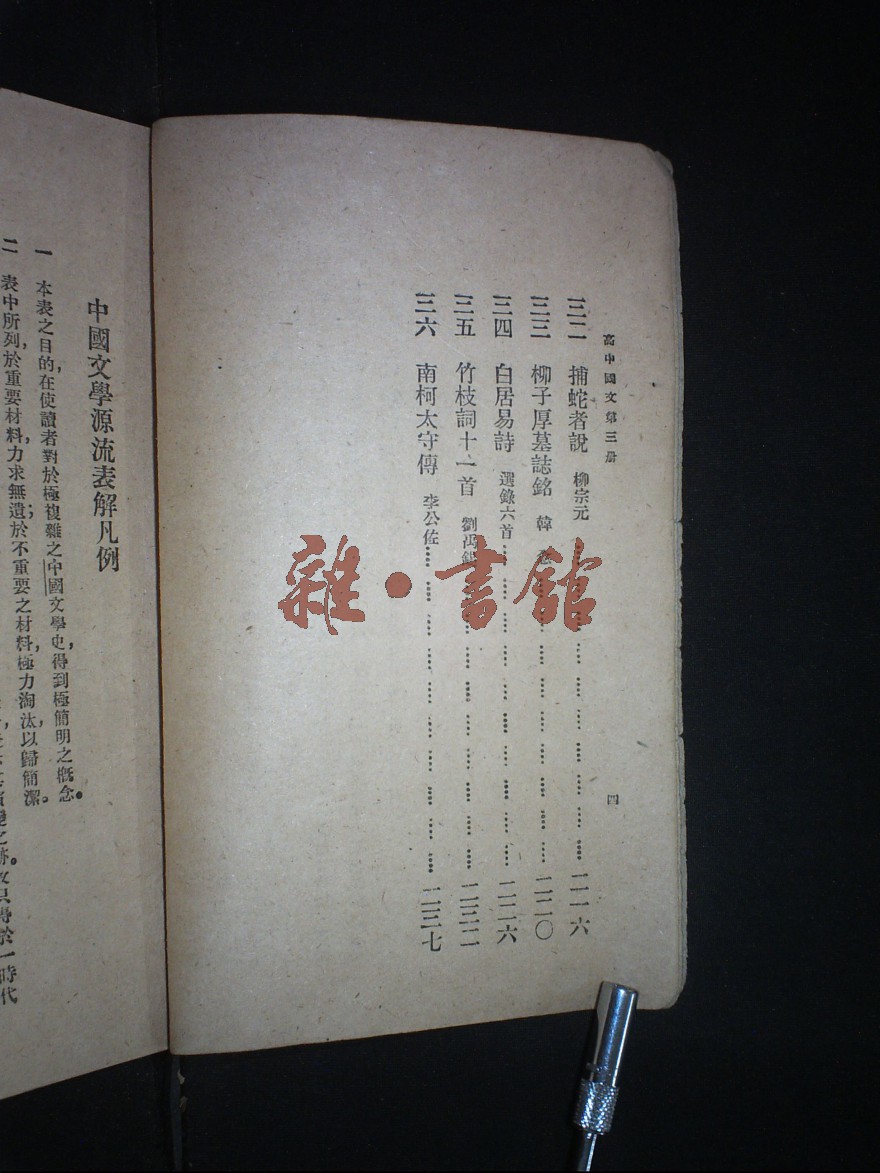 高中國文第三册 四
三二 捕蛇者說 柳宗元 二一六
三三 柳子厚墓誌銘 韓 二二〇
三四 白居易詩 選錄六首 二二六
三五 竹枝詞十一首 劉禹錫 二三二
三六 南柯太守傳 李公佐 二三七
雜·書舘
中國文學源流表解凡例
一 本表之目的，在使讀者對於極複雜之中國文學史，得到極簡明之概念。
二 表中所列，於重要材料，力求無遺；於不重要之材料，極力淘汰，以歸簡潔。
於一時代